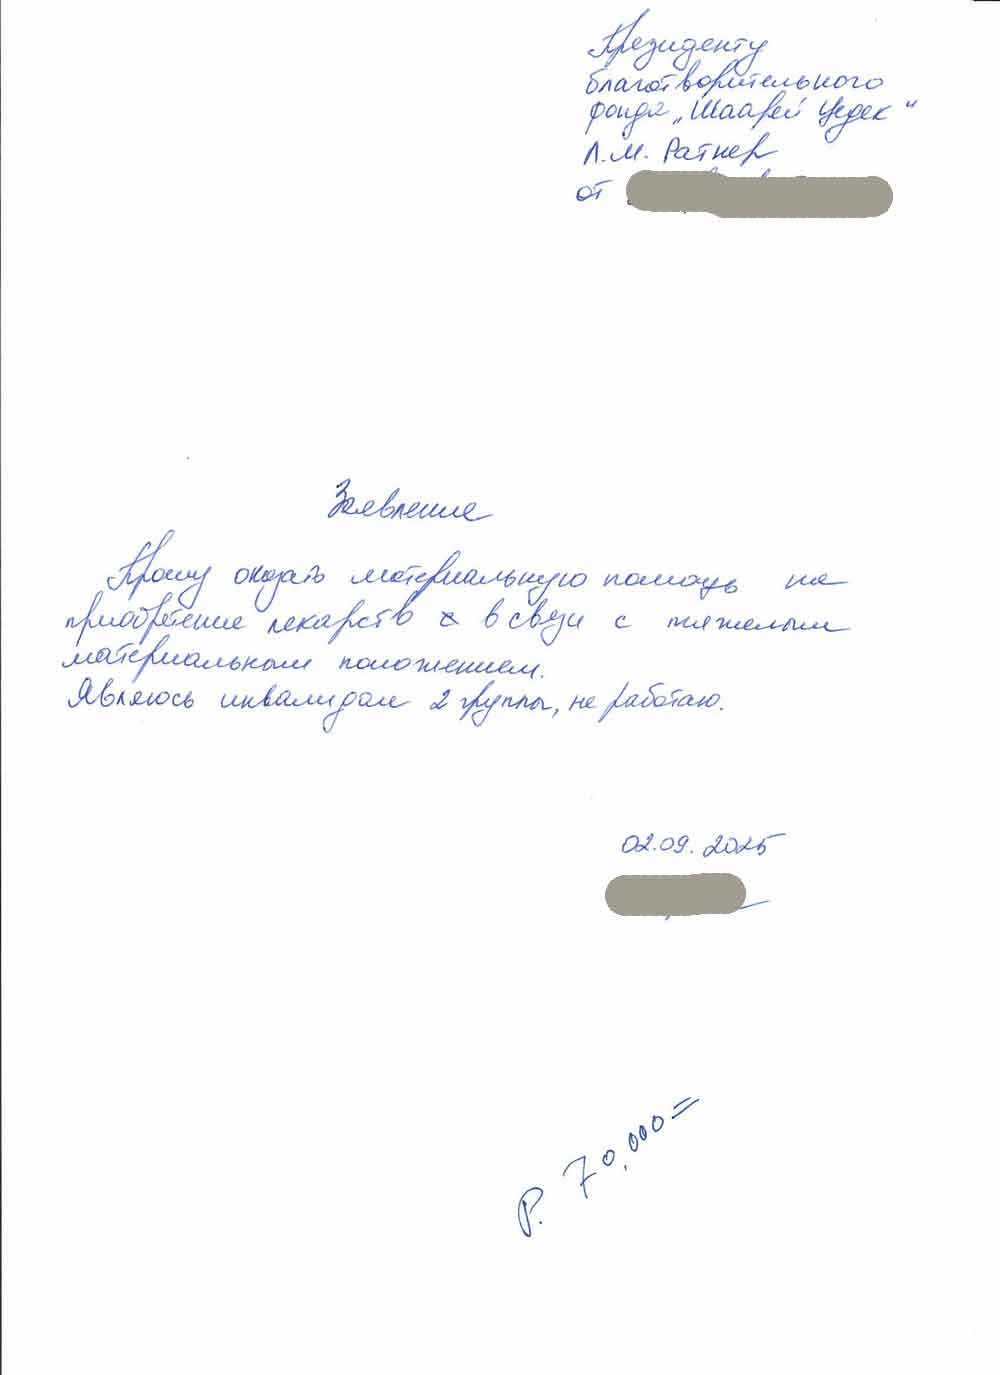 Президенту
благотворительного
фонда „Шаарей Цедек“
Л.М. Ратнер
от
Заявление
Прошу оказать материальную помощь на
приобретение лекарств в связи с тяжелым
материальном положением.
Являюсь инвалидом 2 группы, не работаю.
02.09.2025
Р. 70,000=